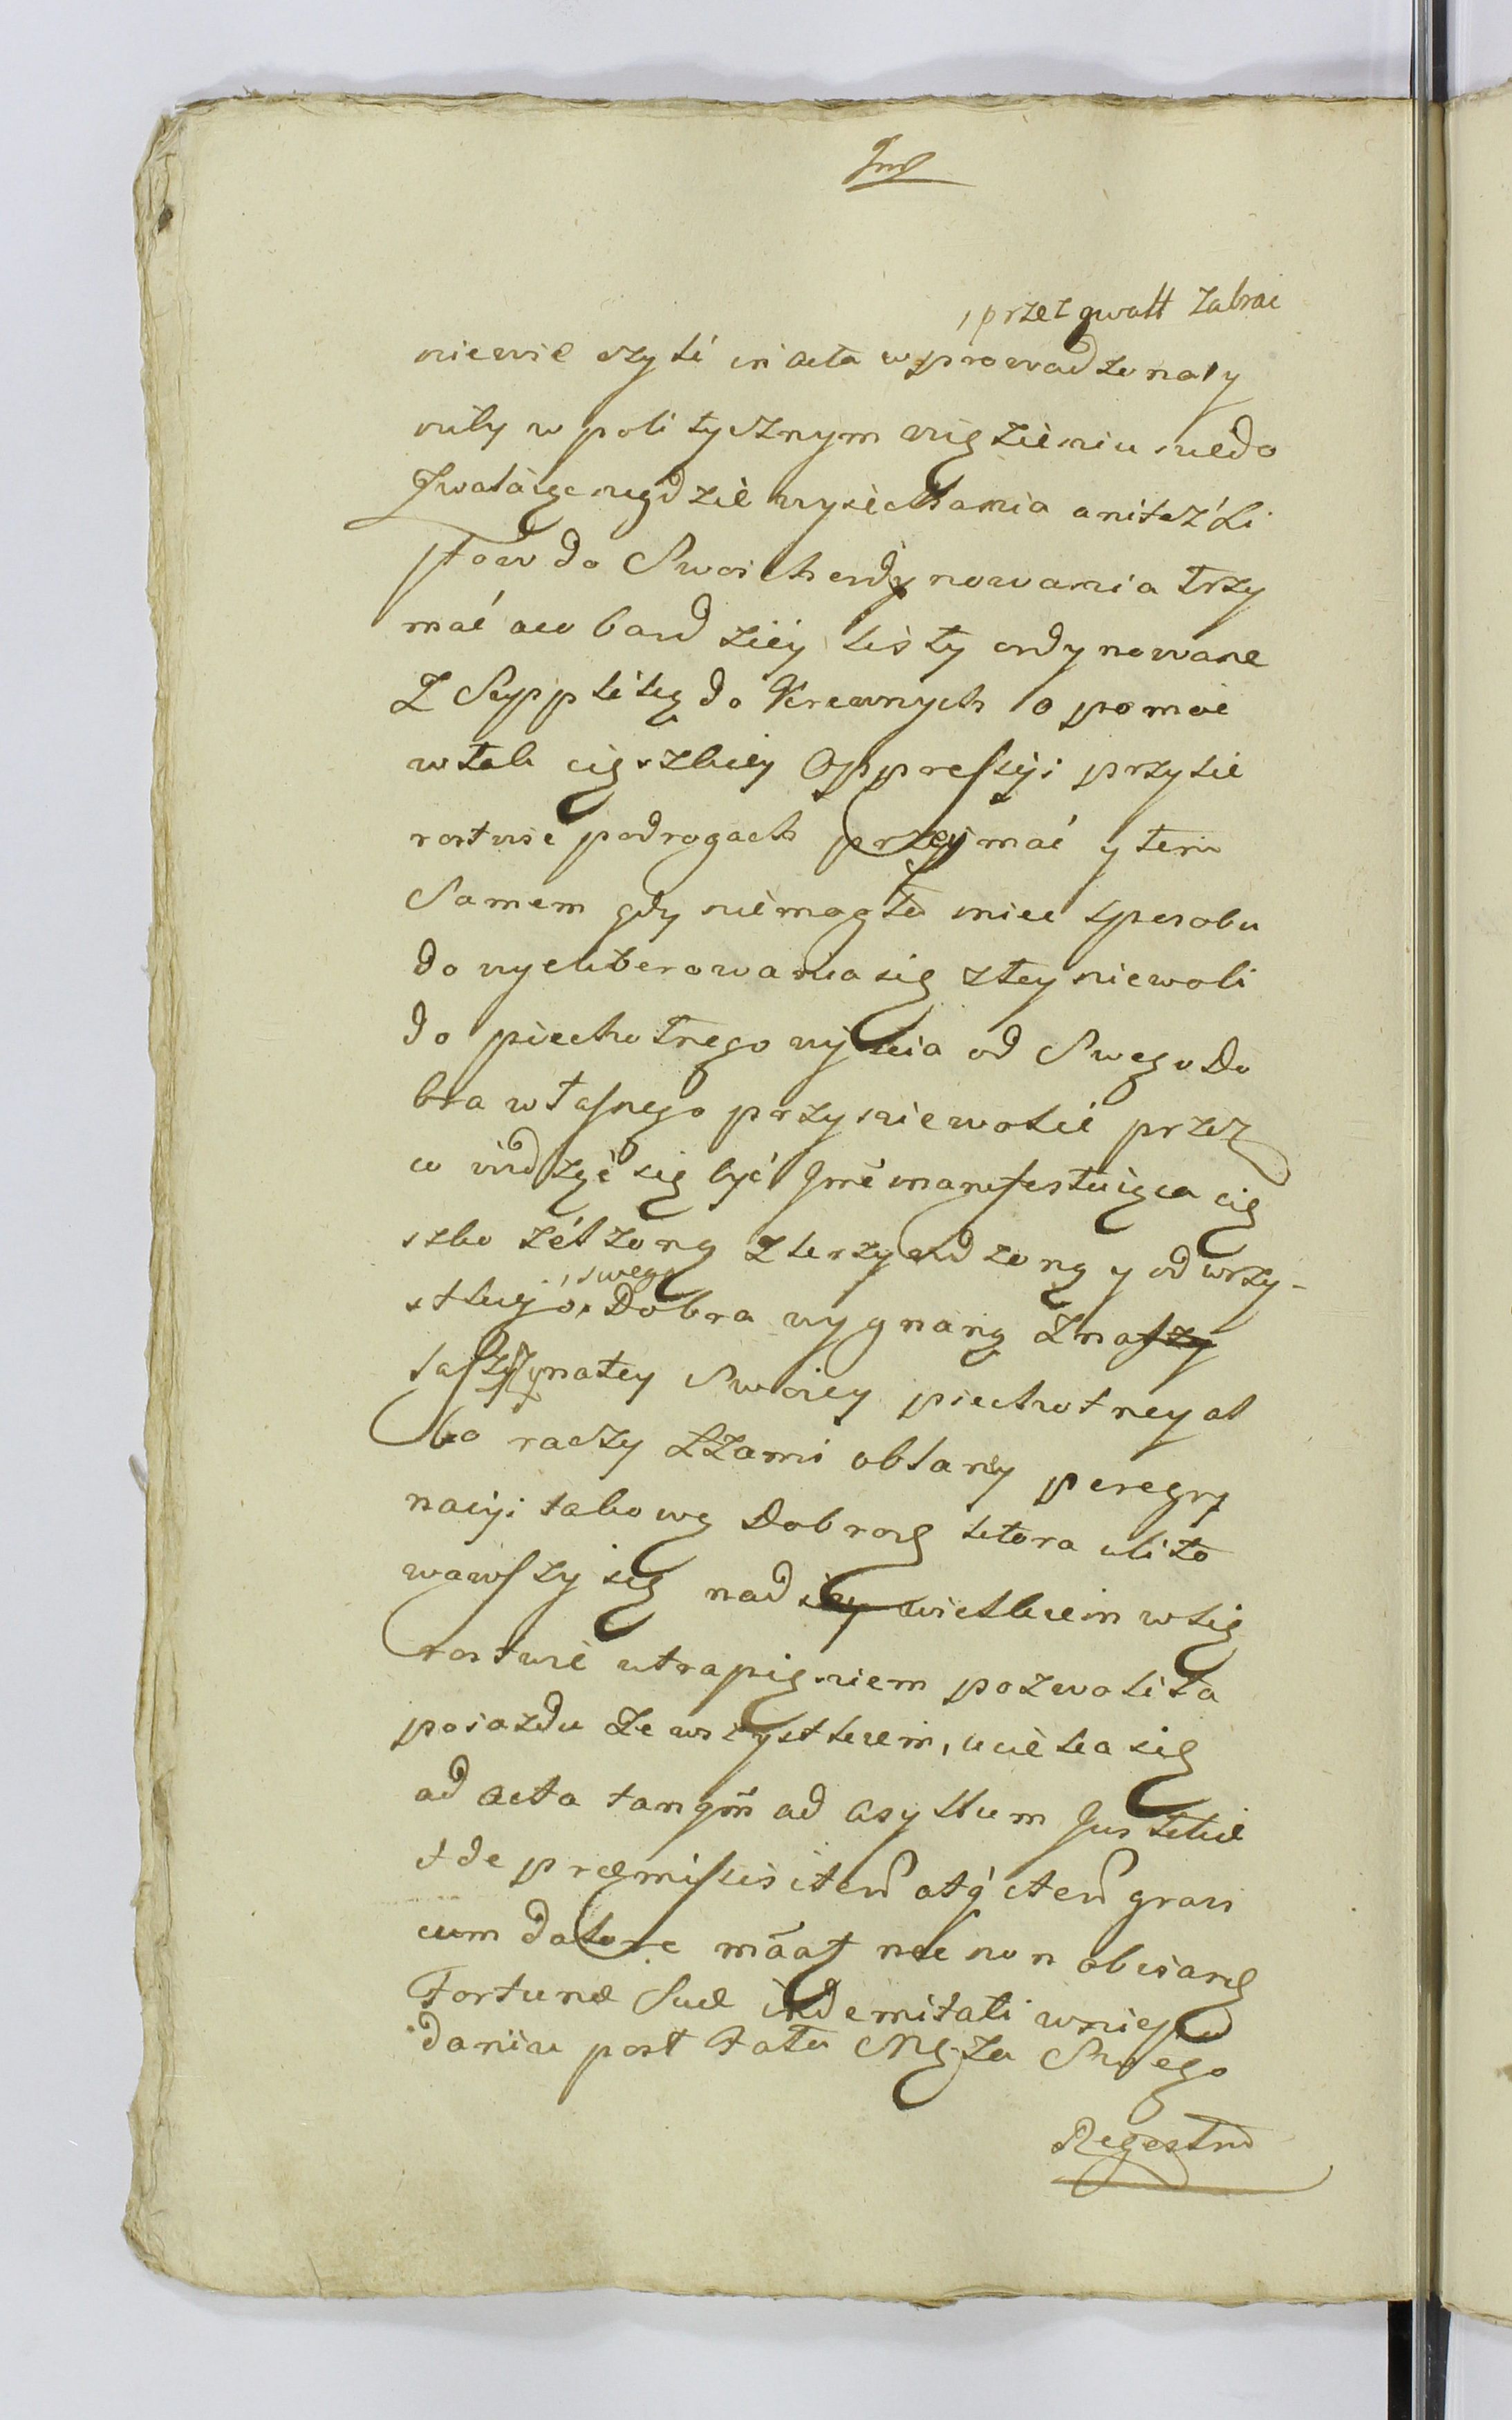 , przez gwałt zabrac
niewie czyli in acta wprowadzona, y
niby w politycznym więzieniu niedo
zwalaiąc nigdzie wyiechania aniteż Li
stow do Swoich ordynowania trzy
mać a co bardziey listy ordynowane
z Suppliką do Krewnych o pomoc
w tak cięszkiey Oppressyi przykie
rostwie podrogach przeymać y tem
Samem gdy niemogła miec sposobu
do wyeliberowania się z tey niewoli
do piechotnego wyiscia od Swego Do
bra własnego przyniewolił przez
co widząc się być Jmć manifestuiąca cię
szko zelżoną zkrzywdzoną y od wszy-
stkiego swego Dobra wygnaną zna
na tey Swoiey piechotney al
bo raczy Łzami oblaney peregry
nacyi takową Dobrodę ktora ulito
wawszy się nad wielkiem w sie
rostwie utrapięniem pozwoliła
poiazdu ze wszystkiem, ucieka się
ad acta tanqm ad asyllum Justitiæ
et de præmissis iterũ atq iterũ gravi
cum dolore maat nec non obviand
Fortunæ Suæ indemitati w nieposia
daniu post fata Męża Swego
Regestrũ